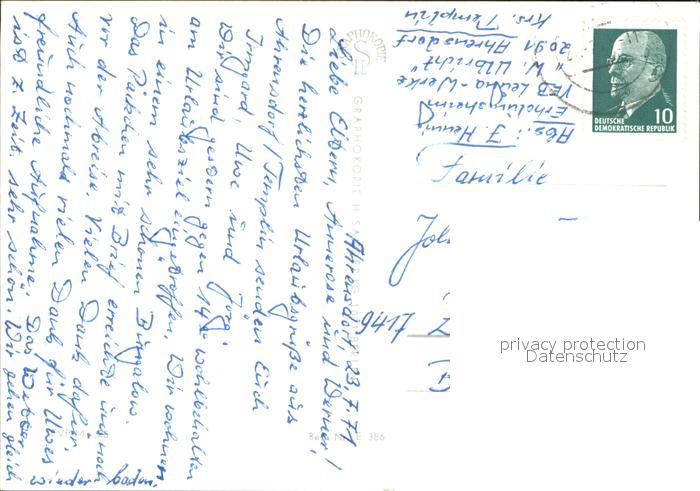 Ahrensdorf, 23.7.71
Liebe Eltern, Annerose und Werner!
Die herzlichsten Urlaubsgrüße aus
Ahrensdorf/Templin senden Euch
Irmgard, Uwe und Jörg.
Wir sind gestern gegen 14 wohlbehalten
am Urlaubsziel eingetroffen. Wir wohnen
in einem sehr schönen Bungalow.
Das Päckchen mit Brief erreichte uns noch
vor der Abreise. Vielen Dank dafür.
Auch nochmals vielen Dank für Uwes
freundliche Aufnahme. Das Wetter
ist z. Zeit sehr schön. Wir gehen gleich
wieder baden.
Abs.: J. Hennig
Erholungsheim
VEB Leuna-Werke
"W. Ulbricht"
2091 Ahrensdorf
Krs. Templin
Familie
Joh
9417
GRAPHOKOPIE
386
10
DEUTSCHE
DEMOKRATISCHE REPUBLIK
privacy protection
Datenschutz